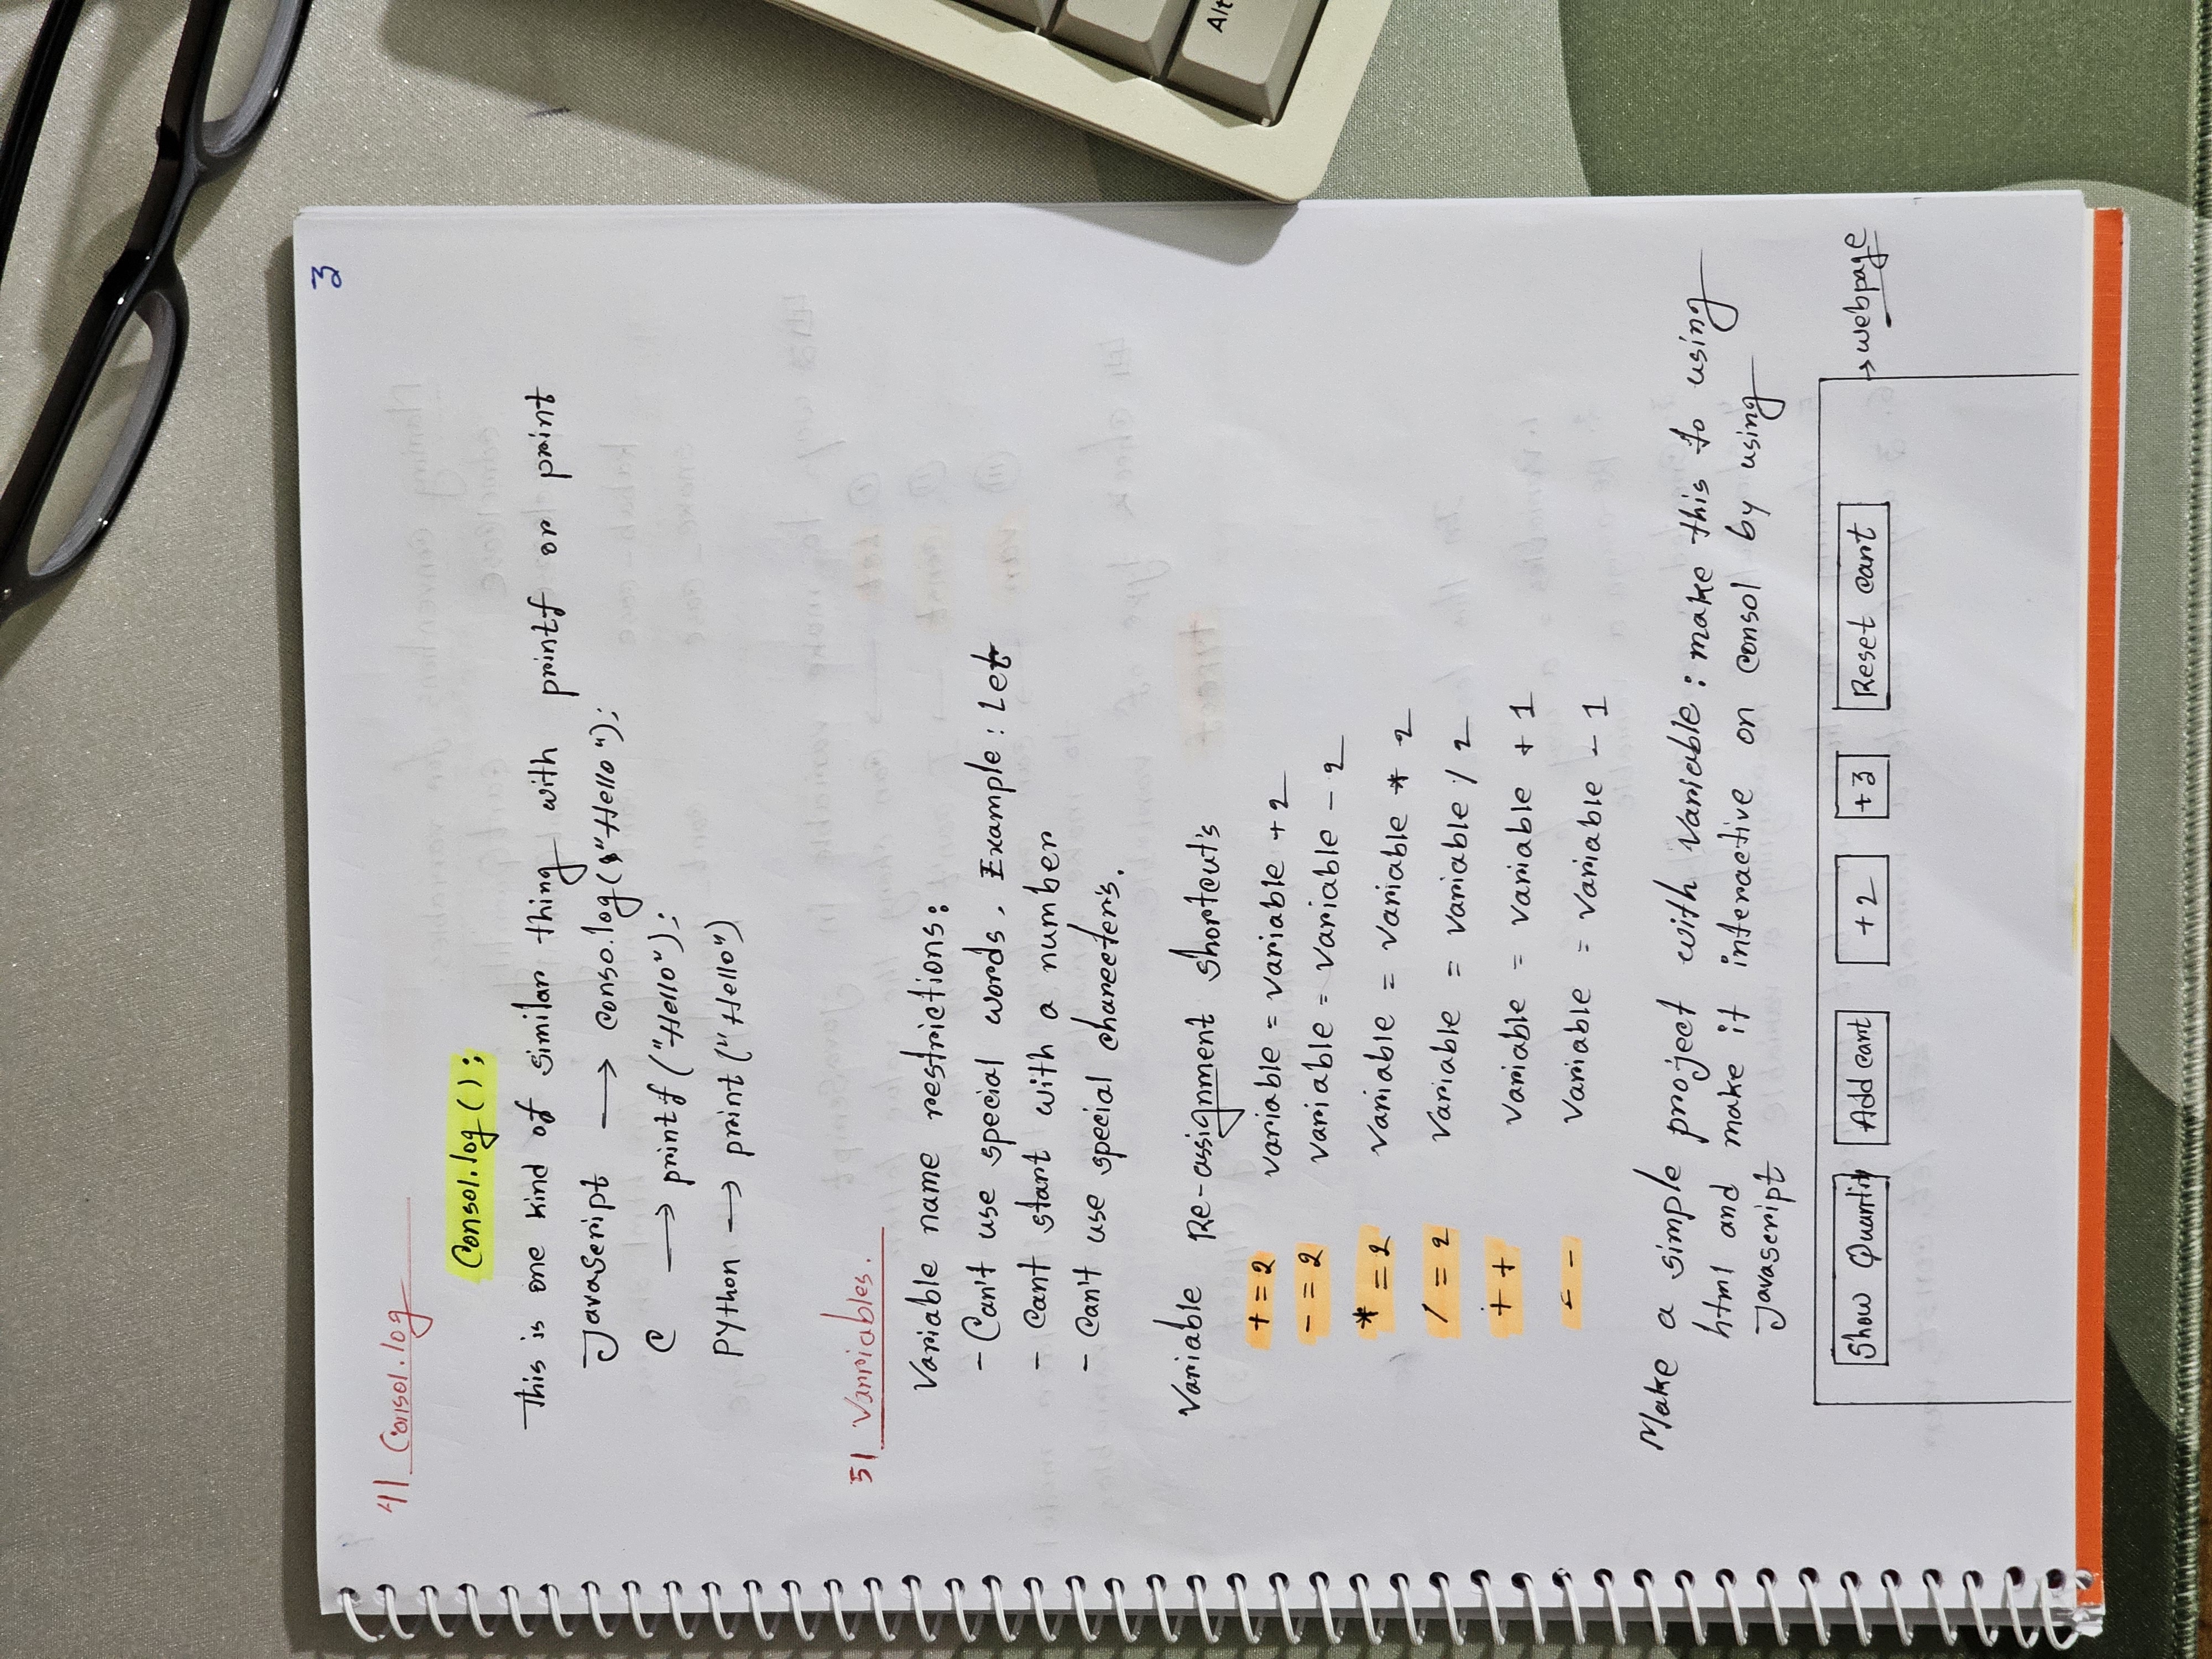 3
4| Consol.log
Consol.log ( ) ;
This is one kind of similar thing with printf or print
JavaScript → conso.log( "Hello");
C → printf ("Hello");
PYthon → print ("Hello")
5| Varriables.
Variable name restrictions:
- Can't use special words. Example : Let
- Cant start with a number
- Can't use special charecter's.
Variable Re-assignment shortcut's
+ = 2 variable = variable + 2
- = 2 variable = variable - 2
* = 2 variable = variable * 2
/ = 2 variable = variable / 2
+ + variable = variable + 1
- - variable = variable - 1
Make a simple project with variable : make this to using
html and make it interactive on consol by using
Javascript
Show Quantity Add cart +2 +3 Reset cart → webpage
Alt